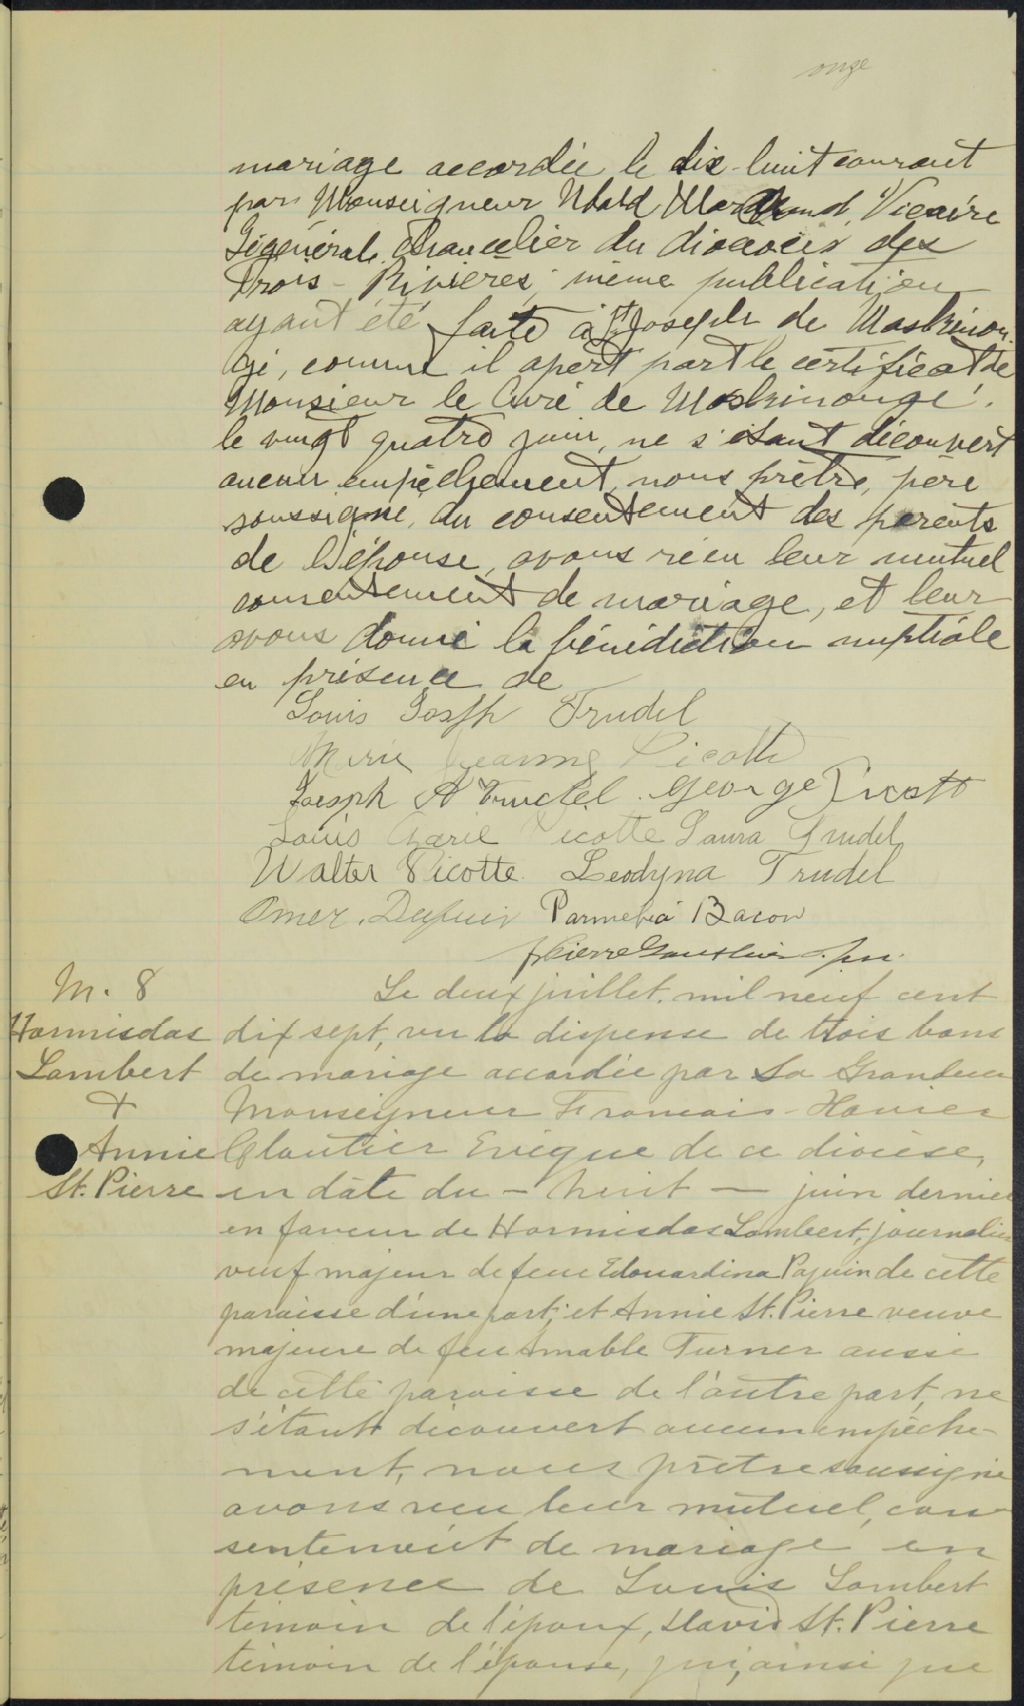 onze
mariage accordée le dix-huit courant
par Monseigneur Ubald Marchand, Vicaire
Général, Chancelier du diocèse des
Trois-Rivières, même publication
ayant été faite à St Joseph de Maskinon-
gé, comme il apert par le certificat de
Monsieur le Curé de Maskinongé,
le vingt quatre juin, ne s'étant découvert
aucun empêchement, nous prêtre, père
soussigné, du consentement des parents
de l'épouse, avons reçu leur mutuel
consentement de mariage, et leur
avons donné la bénédiction nuptiale
en présence de
Louis Joseph Trudel
Marie Jeanne Picotte
Joseph A Trudel. George Picott
Louis Marie Picotte Laura Trudel
Walter Picotte. Leodyna Trudel
Omer. Dupuis Parmelia Bacon
Pierre Gauthier
M. 8
Hormisdas
Lambert
&
Annie
St. Pierre
Le deux juillet, mil neuf cent
dix sept, vu la dispense de trois bans
de mariage accordée par Sa Grandeur
Monseigneur François-Xavier
Cloutier Evêque de ce diocèse,
en date du - huit - juin dernier
en faveur de Hormisdas Lambert, journalier
veuf majeur de feue Edouardina Paquin de cette
paroisse d'une part; et Annie St. Pierre veuve
majeure de feu Amable Turner aussi
de cette paroisse de l'autre part, ne
s'étant découvert aucun empêche-
ment, nous prêtre soussigné
avons reçu leur mutuel, con
sentement de mariage en
présence de Louis Lambert
témoin de l'époux, David St. Pierre
témoin de l'épouse, qui, ainsi que